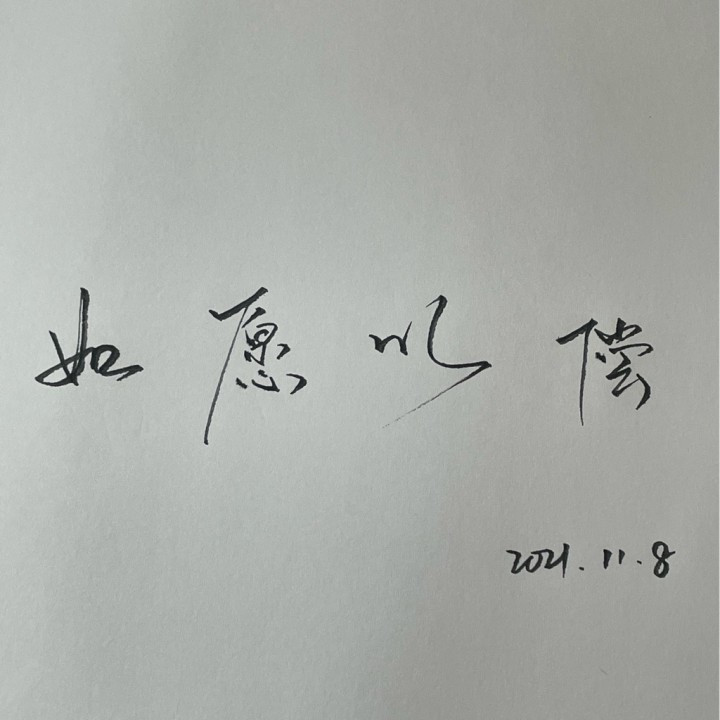 如愿以偿
2021.11.8